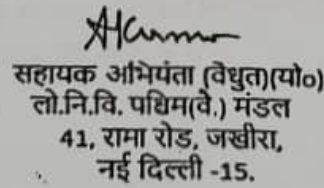 सहायक अभियंता (वेधुत)(यो०)
लो.नि.वि. पधिम(वे.) मंडल
41, रामा रोड़, जखीरा,
नई दिल्ली -15.